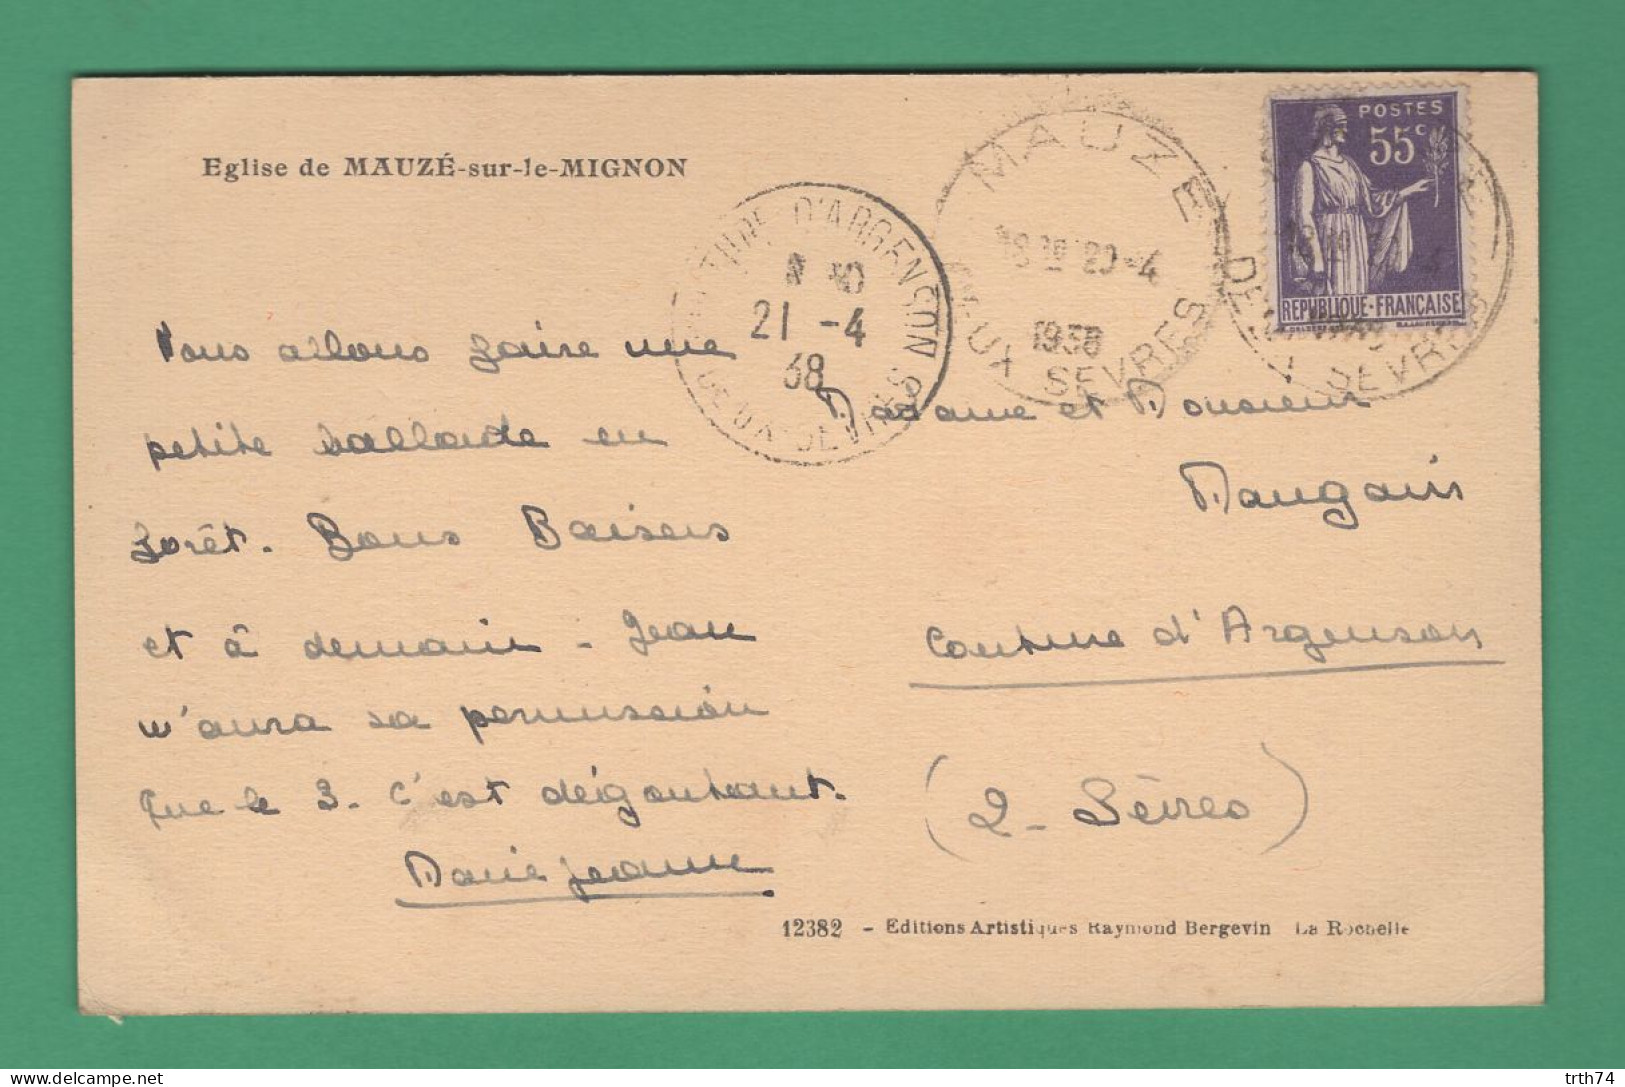 Eglise de MAUZÉ-sur-le-MIGNON
POSTES
55c
REPUBLIQUE-FRANÇAISE
MAUZE
18 20-4
1938
DEUX SEVRES
D'ARGENSON
21 -4
38
DEUX-SEVRES
Nous allons faire une
petite ballade en
forêt. Bons Baisers
et à demain - Jean
n'aura sa permission
que le 3. C'est dégoutant.
Marie Jeanne
Madame et Monsieur
Maugain
Couture d'Argenson
(2 - Sèvres)
12382 - Editions Artistiques Raymond Bergevin La Rochelle
trth74